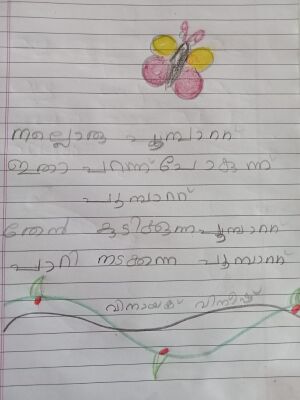 നല്ലൊരു പൂമ്പാറ്റ
ഇതാ പറന്ന് പോകുന്ന്
പൂമ്പാറ്റ
തേൻ കുടിക്കുന്ന പൂമ്പാറ്റ
പാറി നടക്കുന്ന പൂമ്പാറ്റ
വിനായക് വിനീഷ്